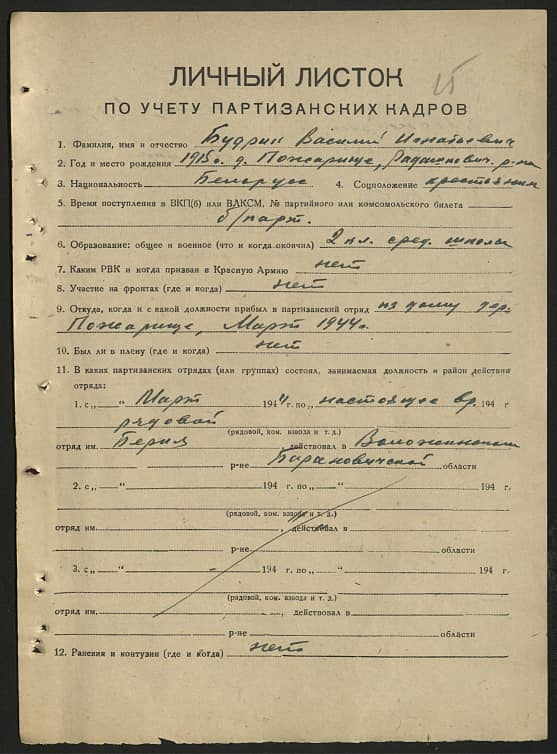 15
ЛИЧНЫЙ ЛИСТОК
ПО УЧЕТУ ПАРТИЗАНСКИХ КАДРОВ
1. Фамилия, имя и отчество Будрик Василий Игнатьевич
2. Год и место рождения 1915 г. д. Пожарище, Радашкович. р-на
3. Национальность Белорусс 4. Соцположение крестьянин
5. Время поступления в ВКП(б) или ВЛКСМ, № партийного или комсомольского билета
б/парт.
6. Образование: общее и военное (что и когда окончил) 2 кл. сред. школы
7. Каким РВК и когда призван в Красную Армию нет
8. Участие на фронтах (где и когда) нет
9. Откуда, когда и с какой должности прибыл в партизанский отряд из дому дер.
Пожарище, Март 1944 г.
10. Был ли в плену (где и когда) нет
11. В каких партизанских отрядах (или группах) состоял, занимаемая должность и район действия
отряда:
1. с „ Март “ 1944 г. по „ настоящее вр. 194 г
рядовой
(рядовой, ком. взвода и т. д.)
отряд им. Берия, действовал в Воложинском
р-не Барановичской области
2. с „ “ 194 г. по „ “ 194 г.
(рядовой, ком. взвода и т. д.)
отряд им. , действовал в
р-не области
3. с „ “ 194 г. по „ “ 194 г.
(рядовой, ком. взвода и т. д.)
отряд им. , действовал в
р-не области
12. Ранения и контузии (где и когда) нет